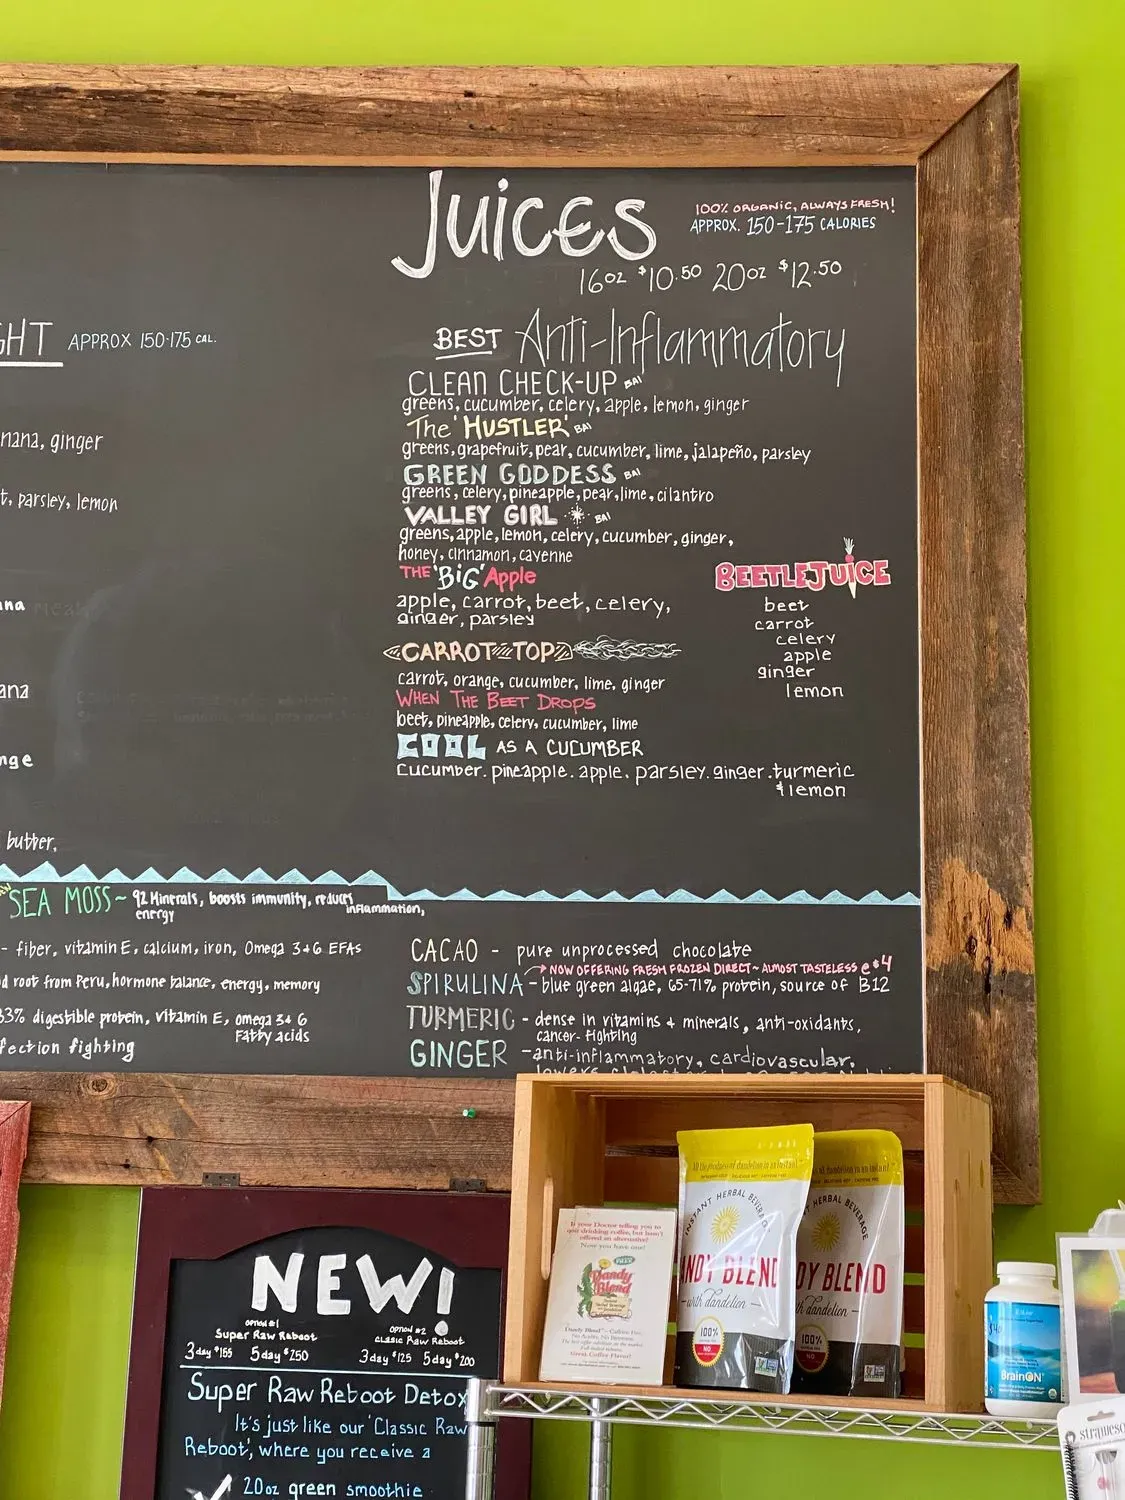 Juices
100% ORGANIC, ALWAYS FRESH!
APPROX. 150-175 CALORIES
16oz $10.50 20oz $12.50
BEST Anti-Inflammatory
CLEAN CHECK-UP BAI
greens, cucumber, celery, apple, lemon, ginger
The 'HUSTLER' BAI
greens, grapefruit, pear, cucumber, lime, jalapeño, parsley
GREEN GODDESS BAI
greens, celery, pineapple, pear, lime, cilantro
VALLEY GIRL BAI
greens, apple, lemon, celery, cucumber, ginger,
honey, cinnamon, cayenne
THE 'BiG' Apple
apple, carrot, beet, celery,
ginger, parsley
CARROT TOP
carrot, orange, cucumber, lime, ginger
WHEN THE BEET DROPS
beet, pineapple, celery, cucumber, lime
COOL AS A CUCUMBER
cucumber. pineapple. apple. parsley. ginger. turmeric
& lemon
BEETLEJUICE
beet
carrot
celery
apple
ginger
lemon
GHT APPROX 150-175 CAL.
nana, ginger
t, parsley, lemon
na
ana
nge
butter,
SEA MOSS ~ 92 Minerals, boosts immunity, reduces
inflammation,
energy
- fiber, vitamin E, calcium, iron, Omega 3+6 EFAs
d root from Peru, hormone balance, energy, memory
33% digestible protein, vitamin E, omega 3+6
Fatty acids
fection fighting
CACAO - pure unprocessed chocolate
NOW OFFERING FRESH FROZEN DIRECT ~ ALMOST TASTELESS @ $4
SPIRULINA - blue green algae, 65-71% protein, source of B12
TURMERIC - dense in vitamins + minerals, anti-oxidants,
cancer-fighting
GINGER - anti-inflammatory, cardiovascular,
NEW!
OPTION #1
Super Raw Reboot
3 day $155 5 day $250
OPTION #2
CLASSIC Raw Reboot
3 day $125 5 day $200
Super Raw Reboot Detox
It's just like our 'Classic Raw
Reboot', where you receive a
20oz green smoothie
If your Doctor telling you to
quit drinking coffee, but hasn't
offered an alternative?
Now you have one!
Dandy
Blend
Great Coffee Flavor!
All the goodness of dandelion in an instant
INSTANT HERBAL BEVERAGE
ANDY BLEND
with dandelion
100%
NO
HERBAL BEVERAGE
DY BLEND
th dandelion
100%
NO
BrainON